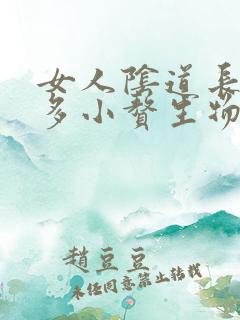 女人陰道長
多小贅生物
趙豆豆
未经同意禁止转载